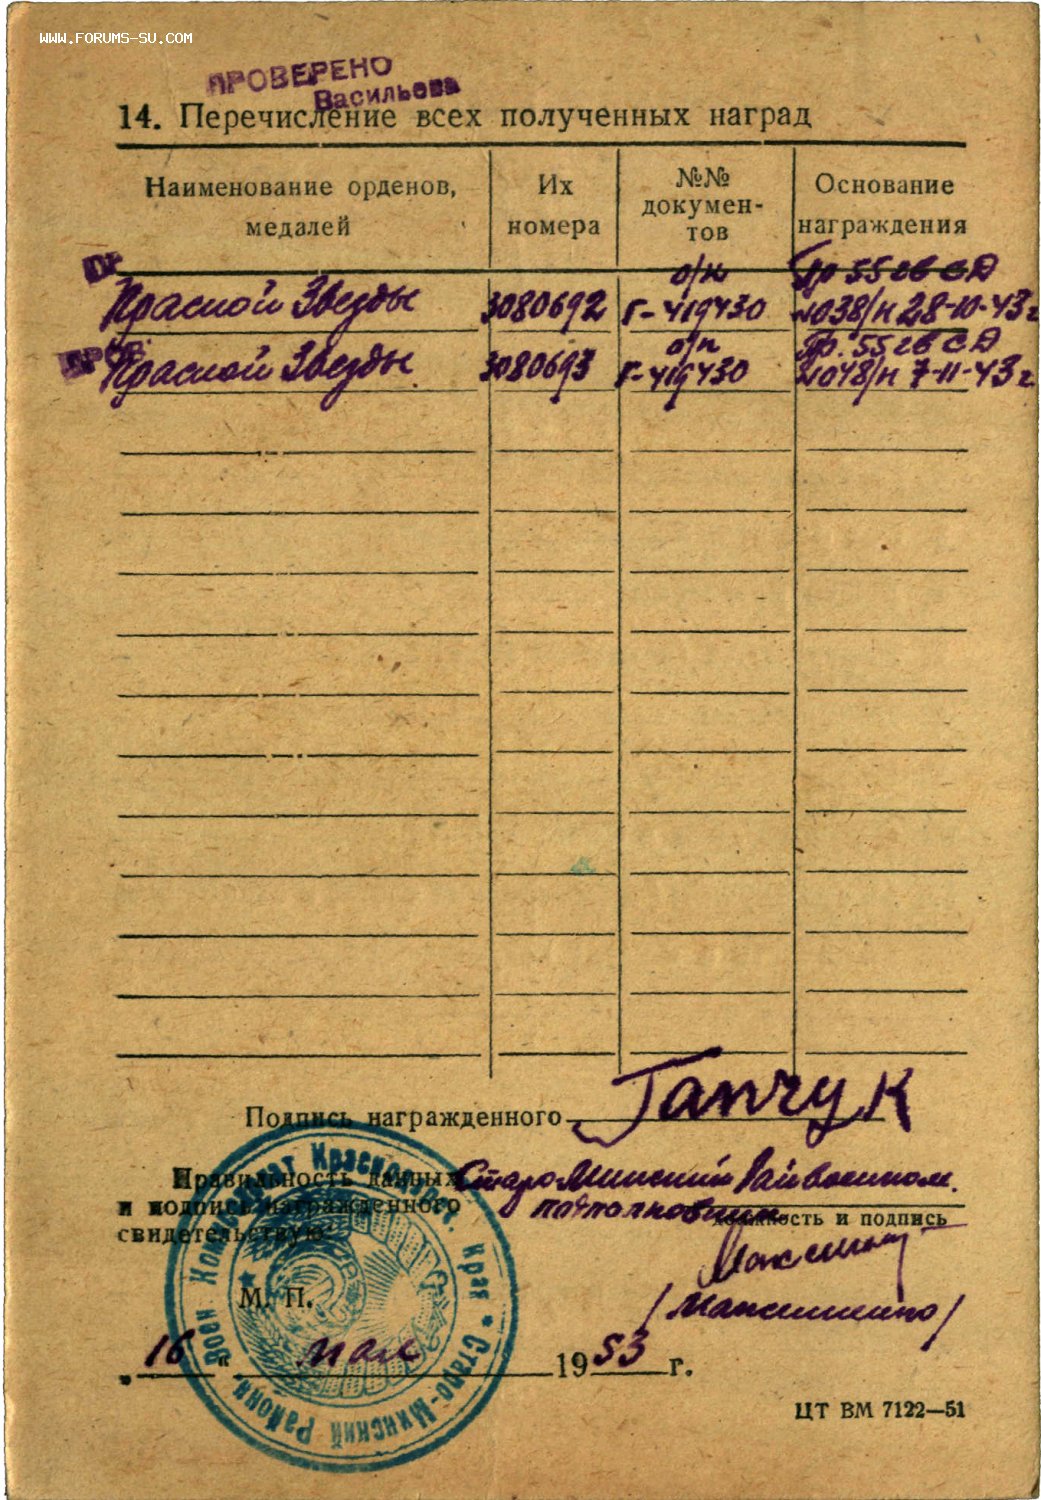 WWW.FORUMS-SU.COM
ПРОВЕРЕНО
Васильева
14. Перечисление всех полученных наград
Наименование орденов, медалей
Их номера
№№ докумен-тов
Основание награждения
Красной Звезды 3080692 о/к Г-419430 Пр 55 гв СД №038/н 28-10-43 г
Красной Звезды 3080693 о/к Г-419430 Пр. 55 гв СД №048/н 7-11-43 г.
Подпись награжденного Гапчук
Правильность данных
и подпись награжденного
свидетельствую
Старо-Минский Райвоенком.
подполковник
должность и подпись
/Максименко/
М. П.
Воен Комиссариат Краснодарск. Края * Старо-Минский Района.
„16" мая 1953 г.
ЦТ ВМ 7122—51